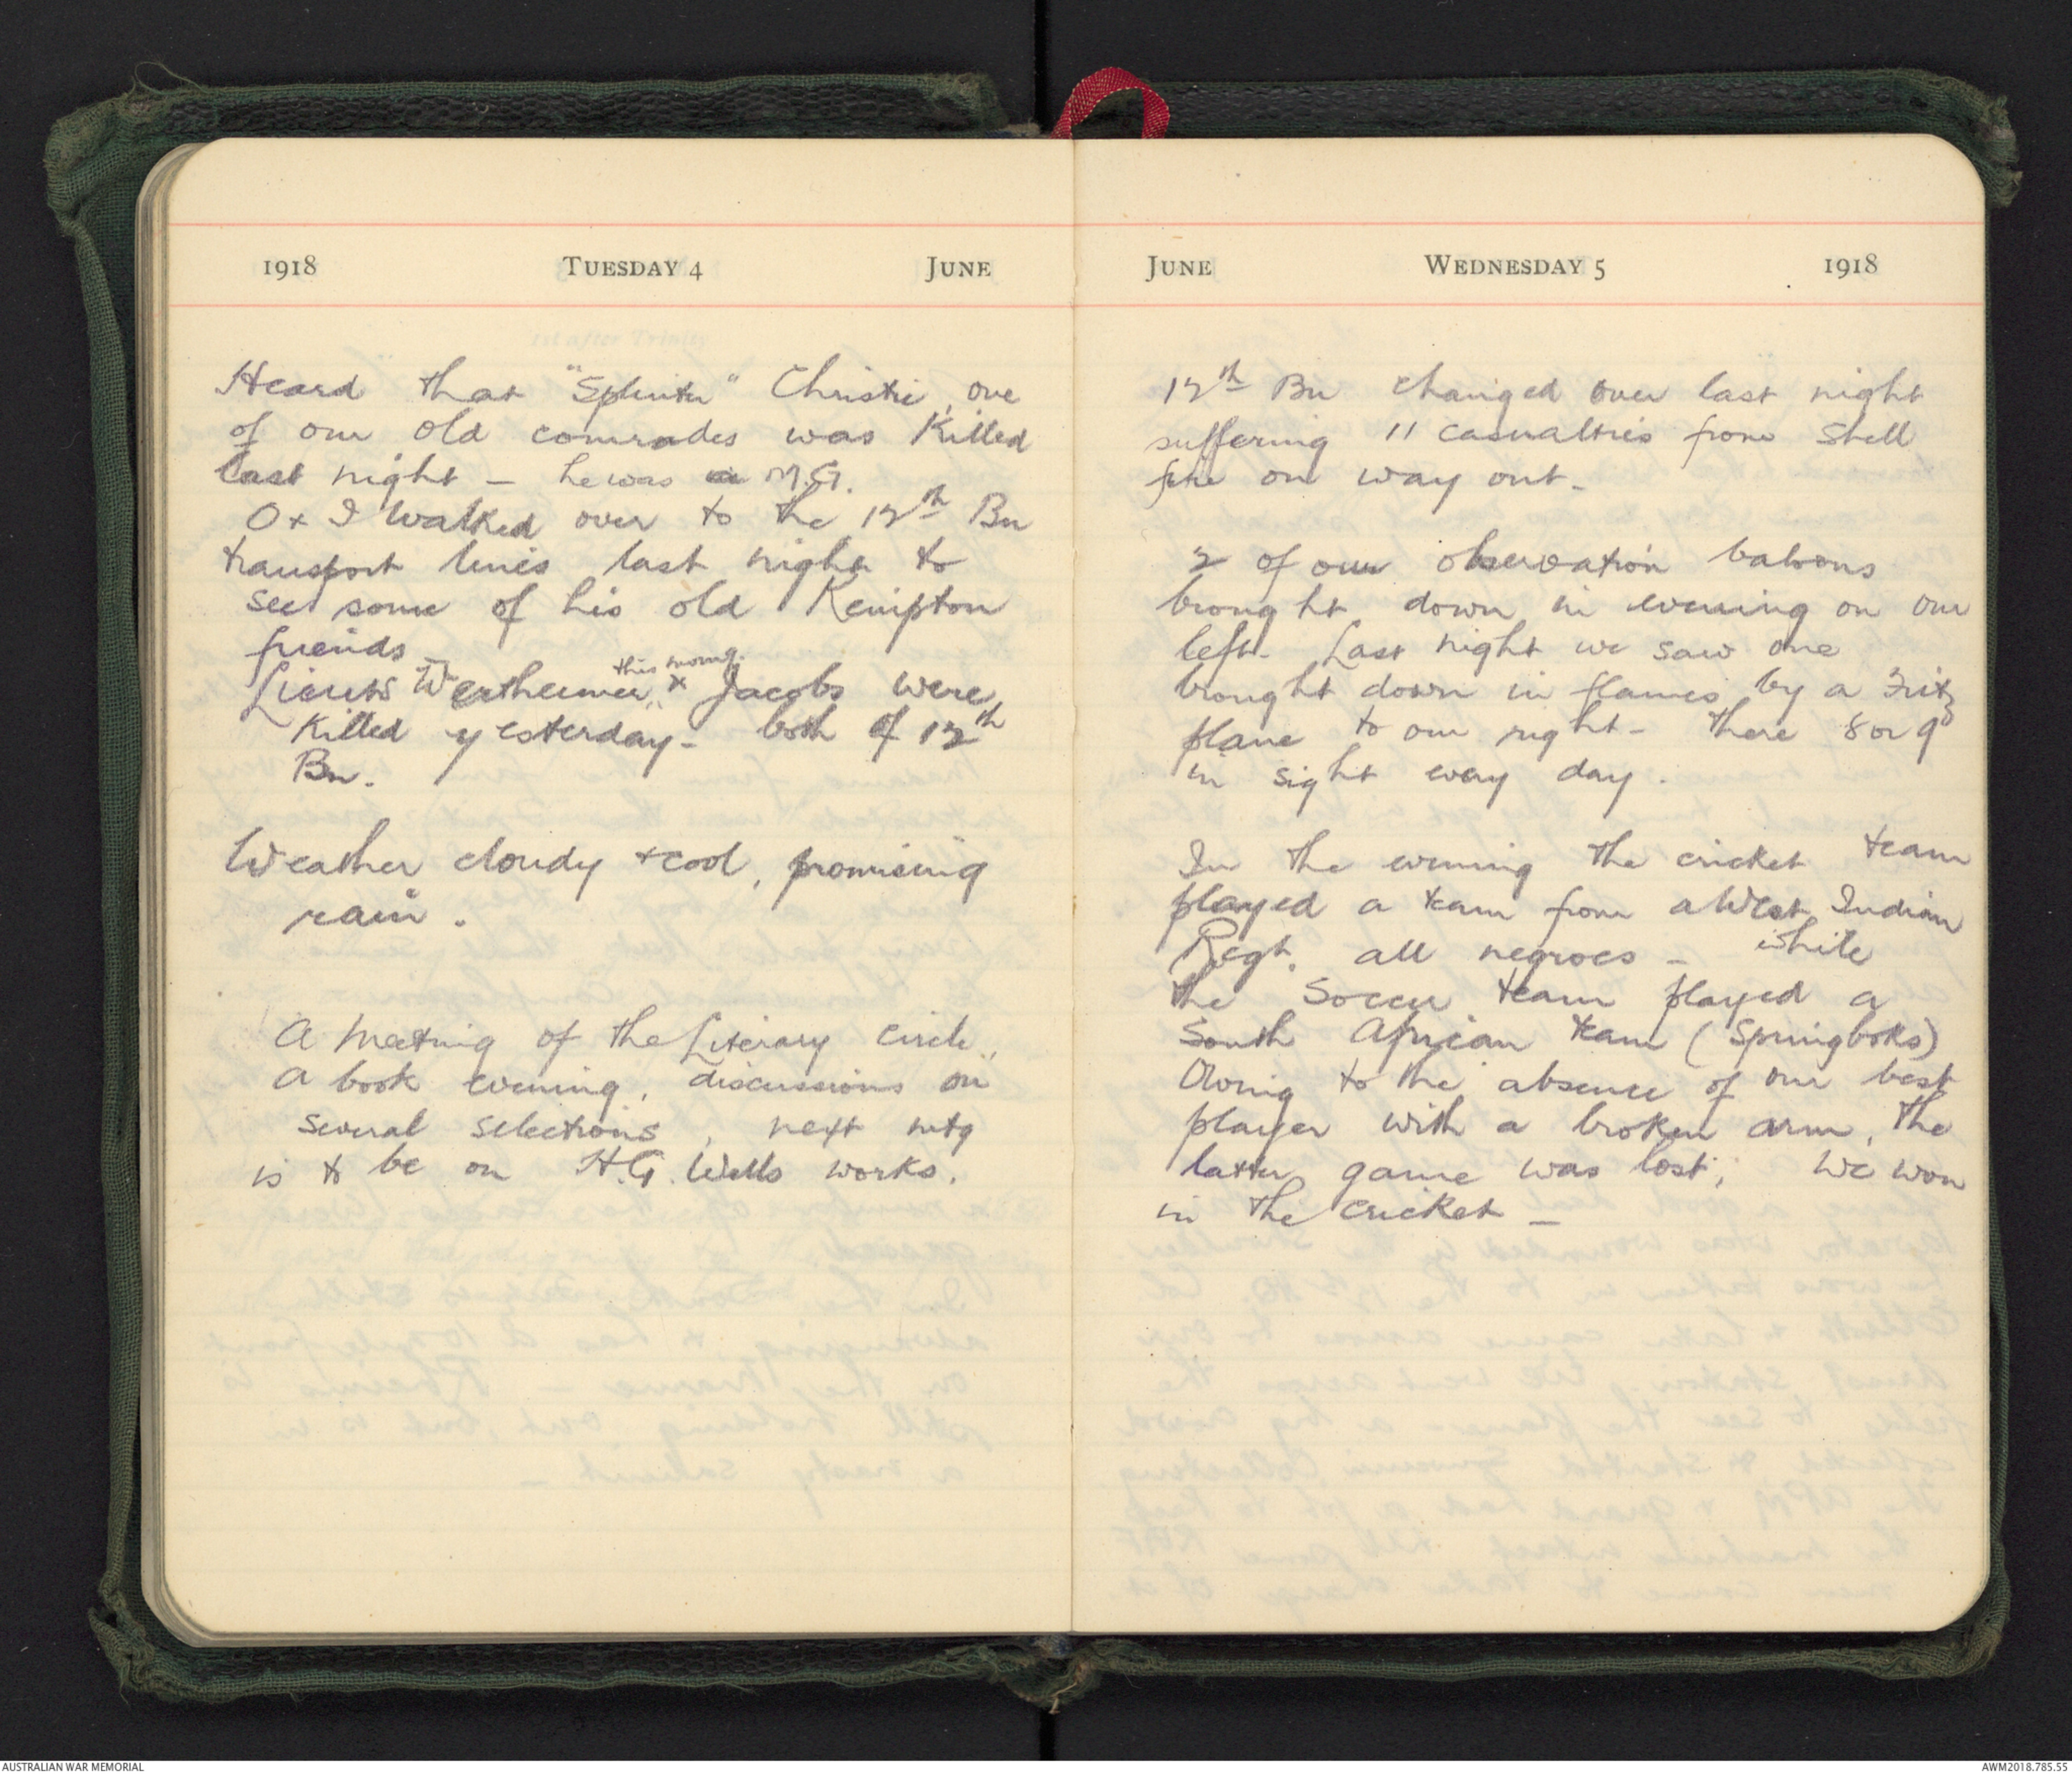 1918 TUESDAY 4 JUNE
Heard that "Splinter" Christie, one
of our old comrades was killed
last night – he was in M.G.
O & I walked over to the 12th Bn
transport lines last night to
see some of his old Kempton
friends –
this morng.
Lieuts Wertheimer & Jacobs were
killed yesterday – both of 12th
Bn.
Weather cloudy & cool, promising
rain.
A meeting of the Literary Circle,
a book evening, discussions on
several selections, next mtg
is to be on H.G. Wells works.
JUNE WEDNESDAY 5 1918
12th Bn changed over last night
suffering 11 casualties from shell
fire on way out –
2 of our observation baloons
brought down in evening on our
left – Last night we saw one
brought down in flames by a Fritz
plane to our right – There 8 or 9
in sight every day.
In the evening the cricket team
played a team from a West Indian
Regt. all negroes – while
the Soccer team played a
South African team (Springboks)
Owing to the absence of our best
player with a broken arm, the
latter game was lost; we won
in the cricket –
AUSTRALIAN WAR MEMORIAL
AWM2018.785.55